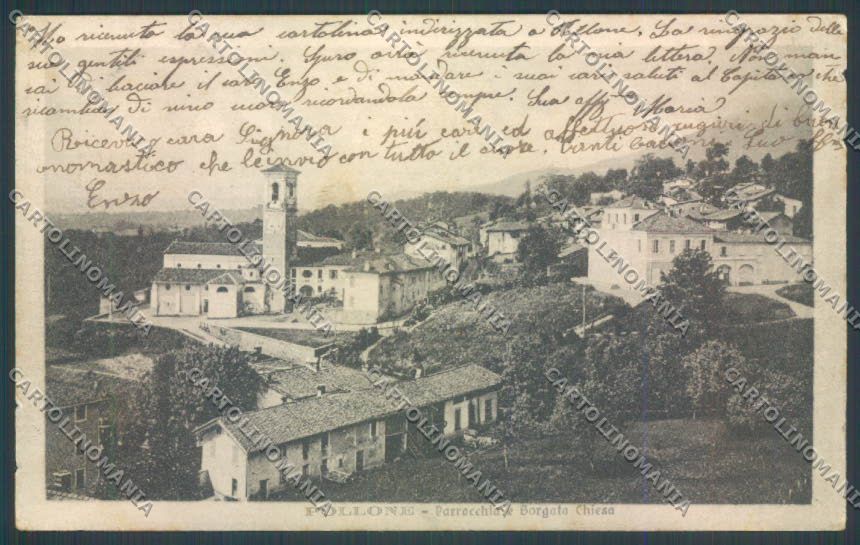 Ho ricevuto la sua cartolina indirizzata a Pollone. La ringrazio delle
sue gentili espressioni. Spero avrà ricevuta la mia lettera. Non man
cai di baciare il caro Enzo e di mandare i suoi cari saluti al Capitano che
ricambia di vivo cuore ricordandola sempre. Sua aff Maria
Riceverà cara Signora i più cari ed affettuosi auguri di buon
onomastico che le invio con tutto il cuore. Tanti bacioni. Suo aff
Enzo
POLLONE - Parrocchia e Borgata Chiesa
CARTOLINOMANIA